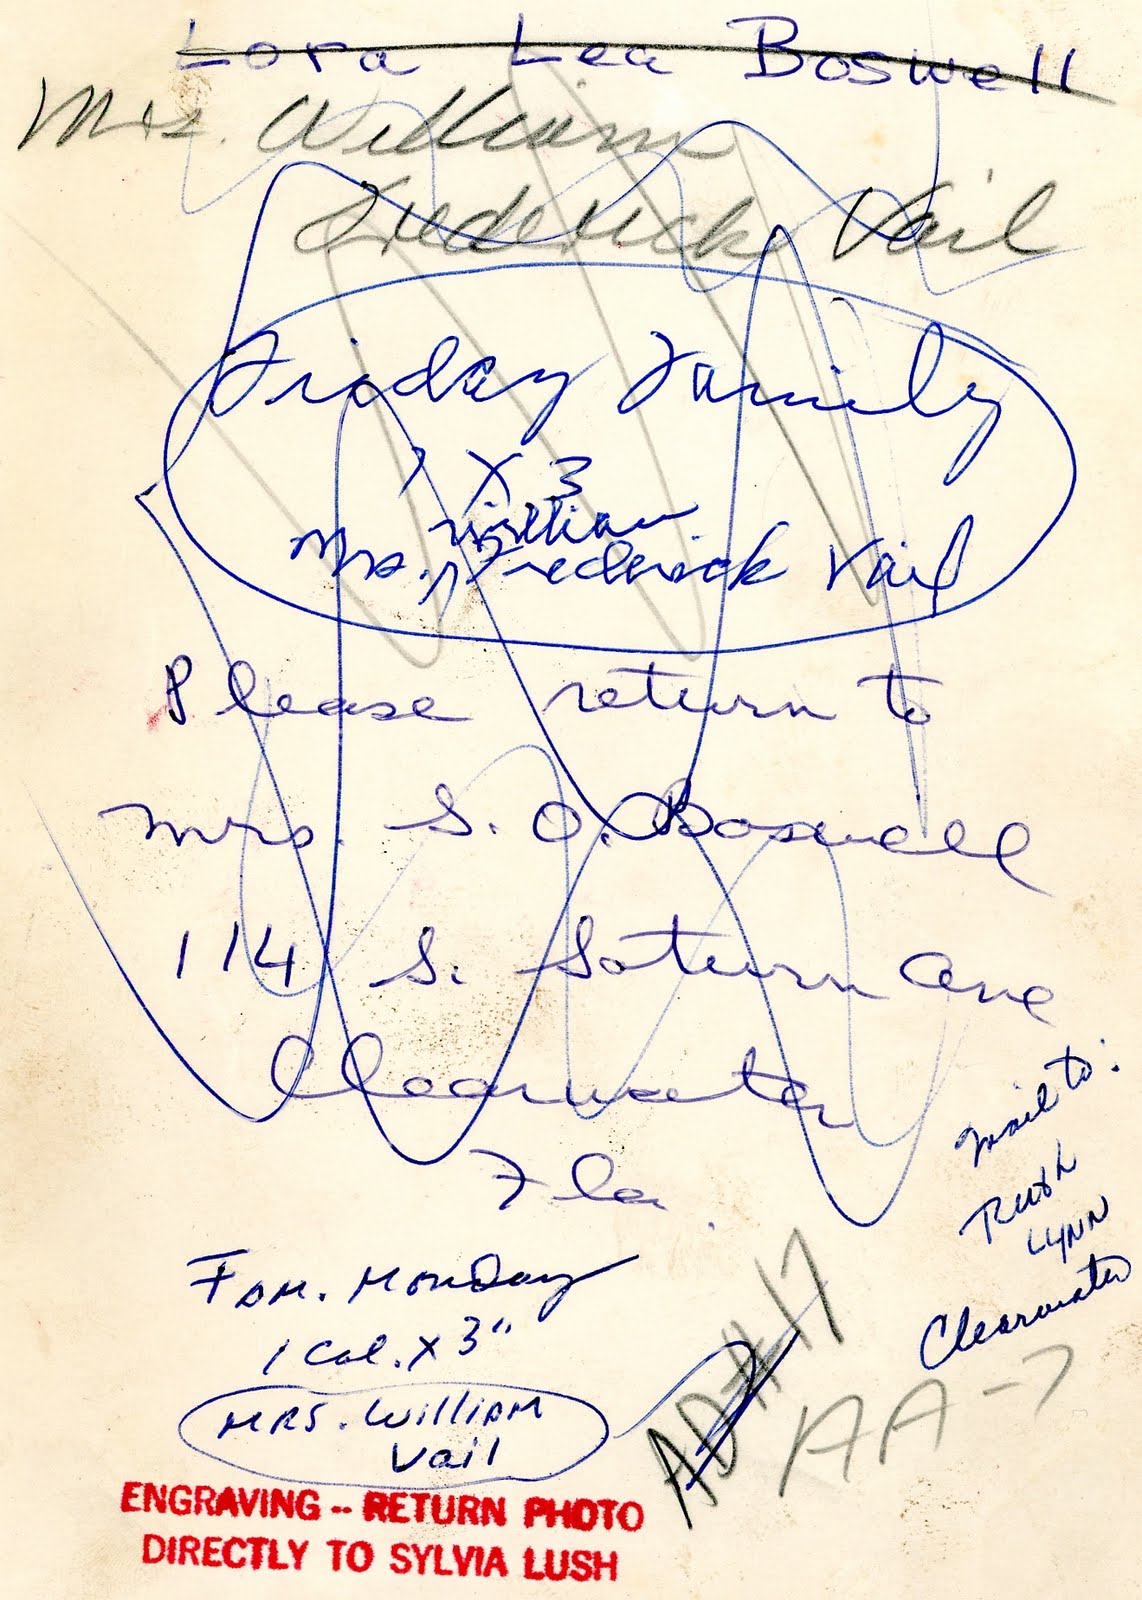 Lora Lea Boswell
Mrs. William
Frederick Vail
Friday Family
1 X 3
William
Mrs. Frederick Vail
Please return to
Mrs. S. O. Boswell
114 S. Saturn Ave
Clearwater
Fla.
Mail to:
Ruth
Lynn
Clearwater
Fam. Monday
1 Col. X 3"
MRS. William
Vail
AD#17
AA-7
ENGRAVING -- RETURN PHOTO
DIRECTLY TO SYLVIA LUSH